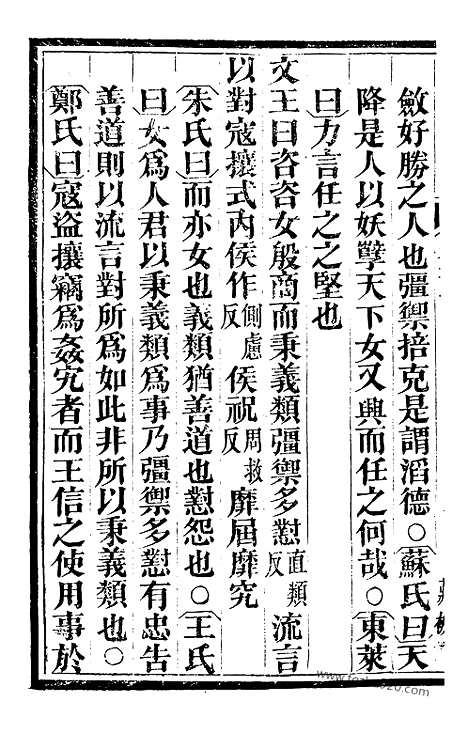 斂好勝之人也彊禦掊克是謂滔德○蘇氏曰天
降是人以妖孼天下女又興而任之何哉○東萊
曰力言任之之堅也
文王曰咨咨女殷商而秉義類彊禦多懟直類反流言
以對寇攘式内侯作側慮反侯祝周救反靡屆靡究
朱氏曰而亦女也義類猶善道也懟怨也○王氏
曰女爲人君以秉義類爲事乃彊禦多懟有忠告
善道則以流言對所爲如此非所以秉義類也○
鄭氏曰寇盗攘竊爲姦宄者而王信之使用事於